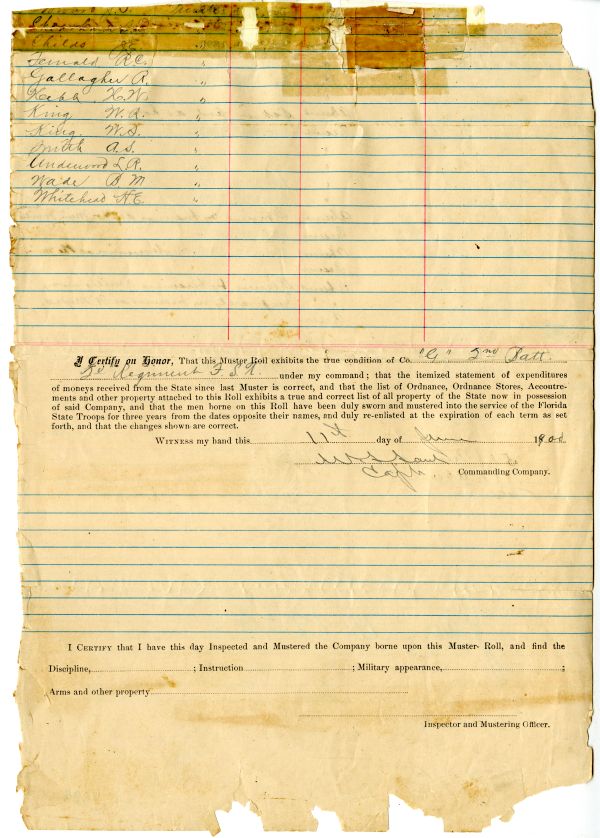 Childs
Fernald R.C. "
Gallagher R. "
Kebb H.W. "
King W.R. "
King W.S. "
Smith A.S. "
Underwood L.R. "
Wade B M "
Whitehead H E "
I Certify on Honor, That this Muster Roll exhibits the true condition of Co. "G" 2nd Batt.
Regiment under my command; that the itemized statement of expenditures
of moneys received from the State since last Muster is correct, and that the list of Ordnance, Ordnance Stores, Accoutre-
ments and other property attached to this Roll exhibits a true and correct list of all property of the State now in possession
of said Company, and that the men borne on this Roll have been duly sworn and mustered into the service of the Florida
State Troops for three years from the dates opposite their names, and duly re-enlisted at the expiration of each term as set
forth, and that the changes shown are correct.
Witness my hand this 11th day of June 190
Capt. Commanding Company.
I Certify that I have this day Inspected and Mustered the Company borne upon this Muster Roll, and find the
Discipline, ; Instruction ; Military appearance, ;
Arms and other property
Inspector and Mustering Officer.